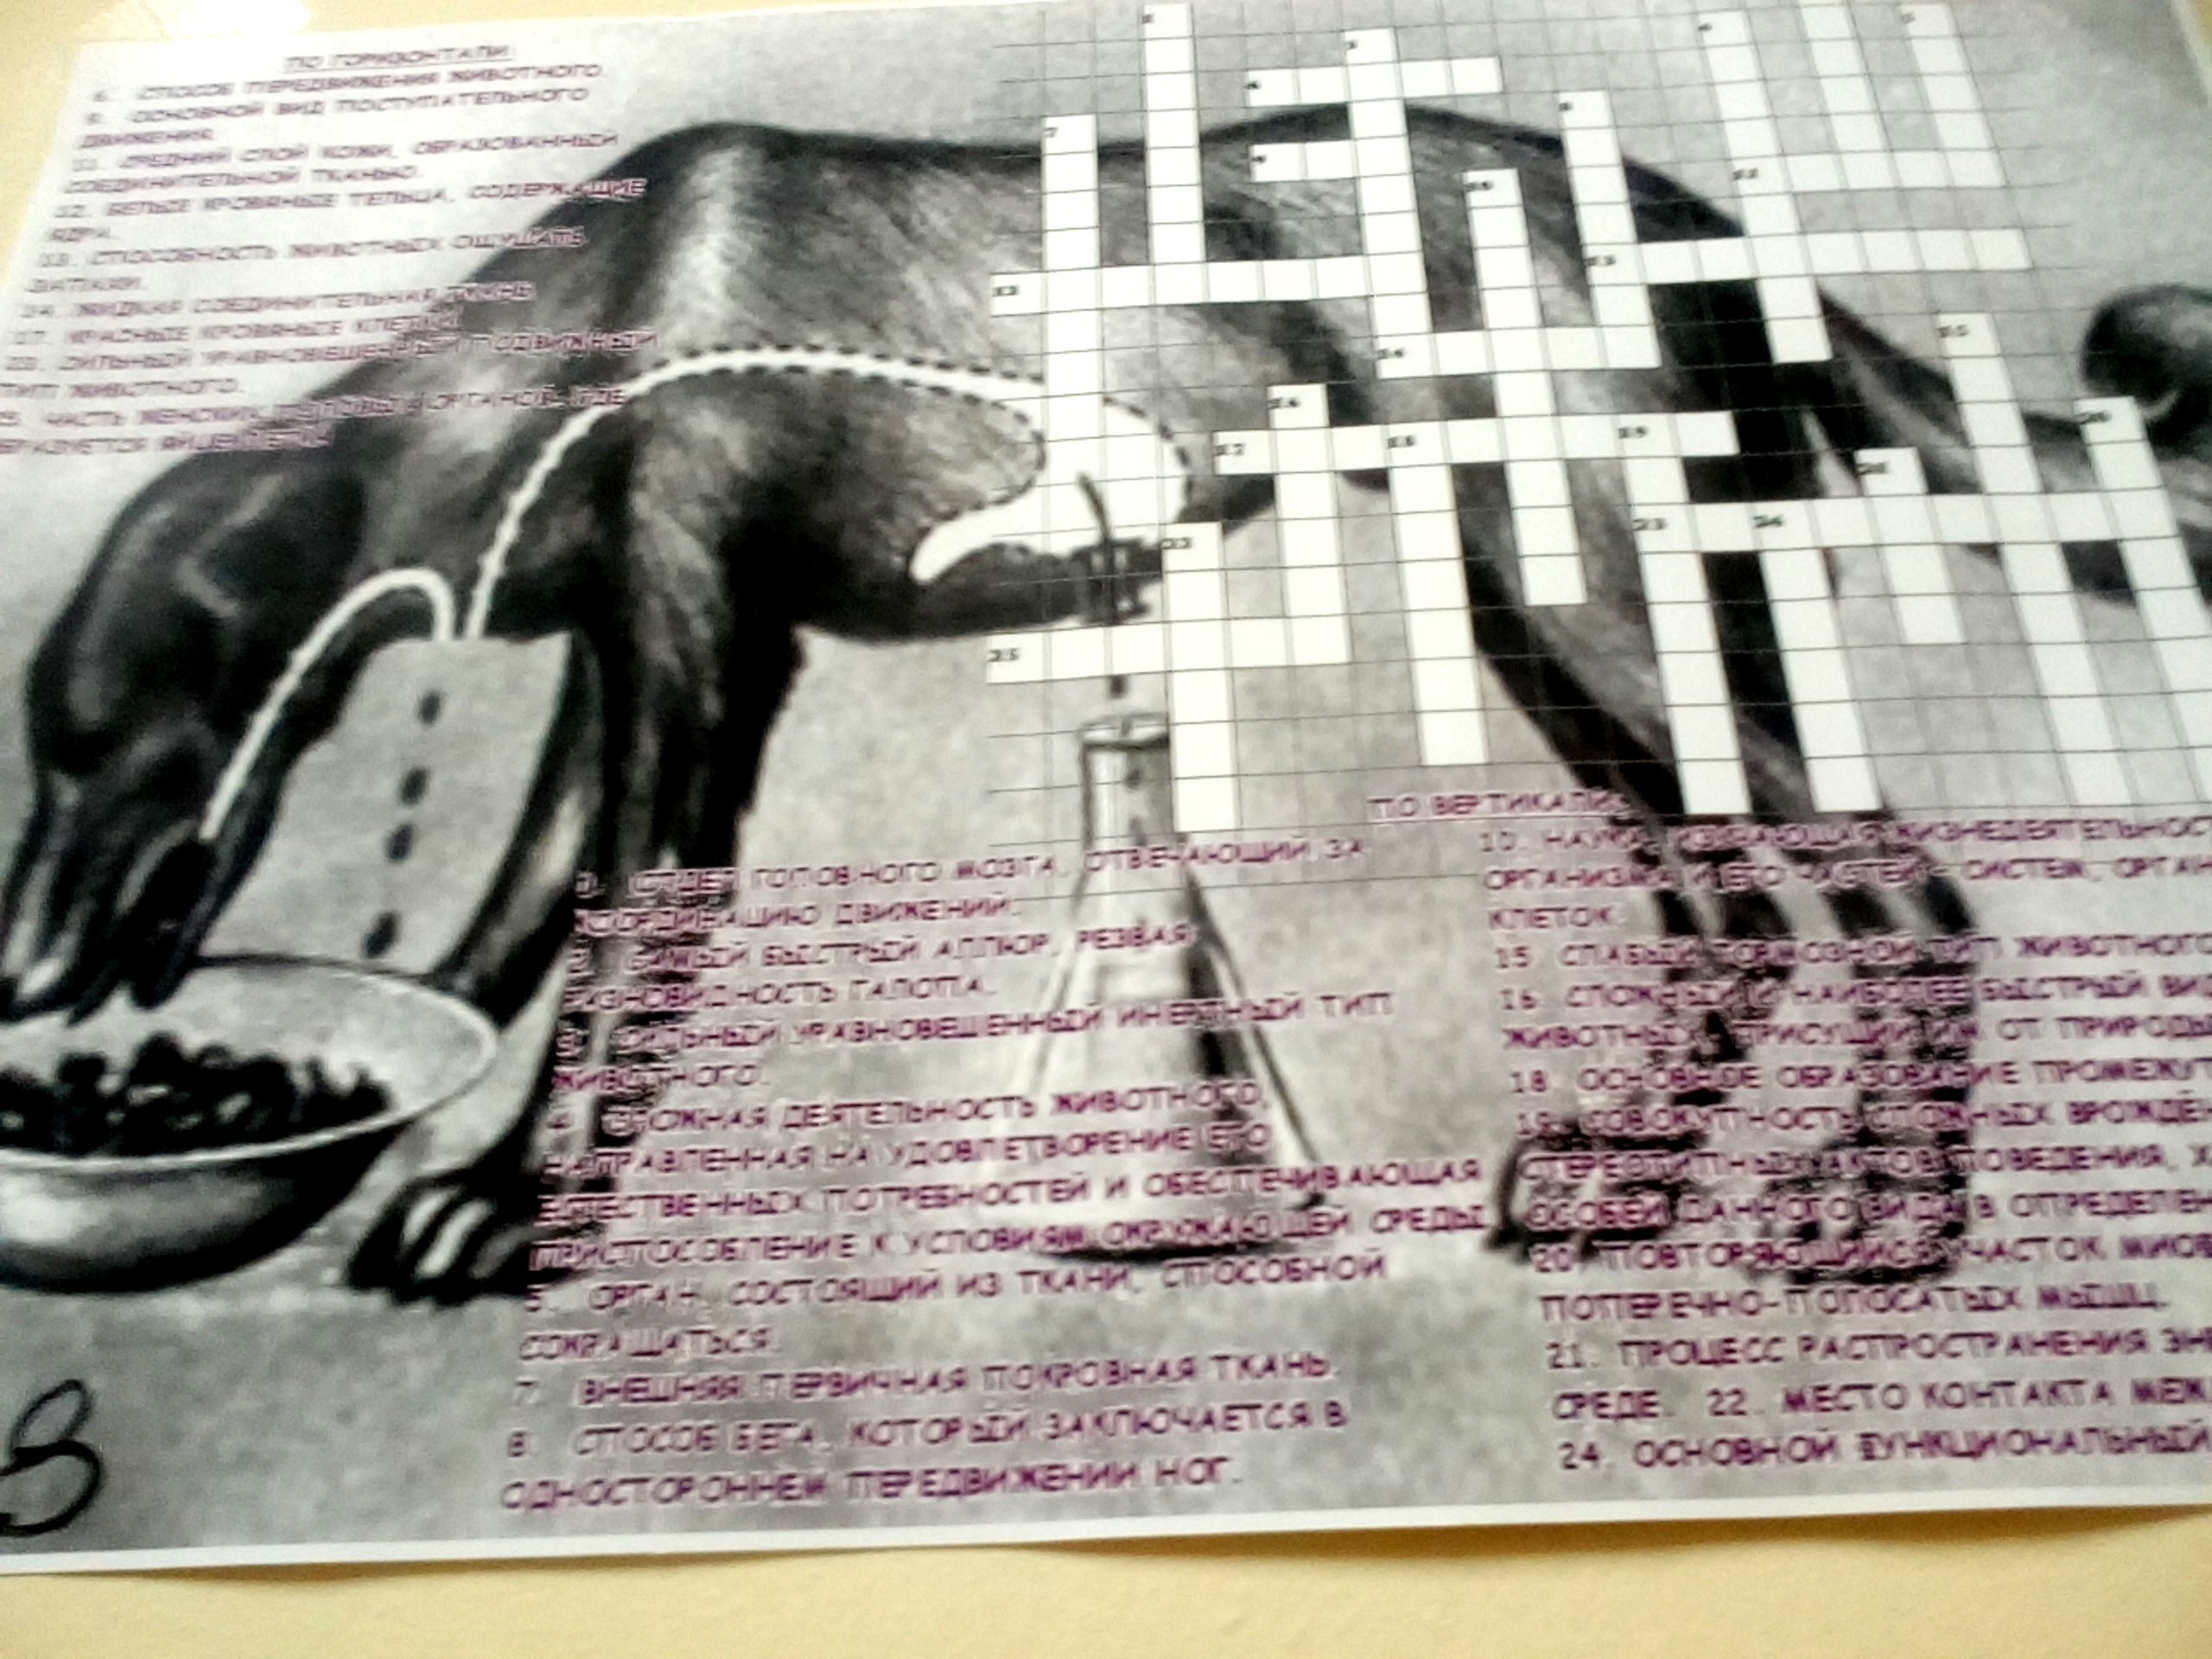 ПО ГОРИЗОНТАЛИ:
6. СПОСОБ ПЕРЕДВИЖЕНИЯ ЖИВОТНОГО
9. ОСНОВНОЙ ВИД ПОСТУПАТЕЛЬНОГО
ДВИЖЕНИЯ
11. СРЕДНИЙ СЛОЙ КОЖИ, ОБРАЗОВАННЫЙ
СОЕДИНИТЕЛЬНОЙ ТКАНЬЮ.
12. БЕЛЫЕ КРОВЯНЫЕ ТЕЛЬЦА, СОДЕРЖАЩИЕ
ЯДРА.
13. СПОСОБНОСТЬ ЖИВОТНЫХ ОЩУЩАТЬ
ЗАПАХИ.
14. ЖИДКАЯ СОЕДИНИТЕЛЬНАЯ ТКАНЬ
17. КРАСНЫЕ КРОВЯНЫЕ КЛЕТКИ
23. СИЛЬНЫЙ УРАВНОВЕШЕННЫЙ ПОДВИЖНЫЙ
ТИП ЖИВОТНОГО.
25. ЧАСТЬ ЖЕНСКИХ ПОЛОВЫХ ОРГАНОВ, ГДЕ
ПО ВЕРТИКАЛИ:
1. ОТДЕЛ ГОЛОВНОГО МОЗГА, ОТВЕЧАЮЩИЙ ЗА
КООРДИНАЦИЮ ДВИЖЕНИЙ.
2. САМЫЙ БЫСТРЫЙ АЛЛЮР, РЕЗВАЯ
РАЗНОВИДНОСТЬ ГАЛОПА.
3. СИЛЬНЫЙ УРАВНОВЕШЕННЫЙ ИНЕРТНЫЙ ТИП
ЖИВОТНОГО.
4. СЛОЖНАЯ ДЕЯТЕЛЬНОСТЬ ЖИВОТНОГО,
НАПРАВЛЕННАЯ НА УДОВЛЕТВОРЕНИЕ ЕГО
ЕСТЕСТВЕННЫХ ПОТРЕБНОСТЕЙ И ОБЕСПЕЧИВАЮЩАЯ
ПРИСПОСОБЛЕНИЕ К УСЛОВИЯМ ОКРУЖАЮЩЕЙ СРЕДЫ.
5. ОРГАН, СОСТОЯЩИЙ ИЗ ТКАНИ, СПОСОБНОЙ
СОКРАЩАТЬСЯ.
7. ВНЕШНЯЯ ПЕРВИЧНАЯ ПОКРОВНАЯ ТКАНЬ.
8. СПОСОБ БЕГА, КОТОРЫЙ ЗАКЛЮЧАЕТСЯ В
ОДНОСТОРОННЕМ ПЕРЕДВИЖЕНИИ НОГ.
10. НАУКА, ИЗУЧАЮЩАЯ ЖИЗНЕДЕЯТЕЛЬНОС
ОРГАНИЗМА И ЕГО ЧАСТЕЙ - СИСТЕМ, ОРГАН
КЛЕТОК.
15. СЛАБЫЙ ТОРМОЗНОЙ ТИП ЖИВОТНОГО
16. СЛОЖНЫЙ И НАИБОЛЕЕ БЫСТРЫЙ ВИ
ЖИВОТНЫХ, ПРИСУЩИЙ ИМ ОТ ПРИРОДЫ
18. ОСНОВНОЕ ОБРАЗОВАНИЕ ПРОМЕЖУТ
19. СОВОКУПНОСТЬ СЛОЖНЫХ ВРОЖДЁ
СТЕРЕОТИПНЫХ АКТОВ ПОВЕДЕНИЯ, Х
ОСОБЕЙ ДАННОГО ВИДА В ОПРЕДЕЛЕН
20. ПОВТОРЯЮЩИЙСЯ УЧАСТОК МИО
ПОПЕРЕЧНО-ПОЛОСАТЫХ МЫШЦ.
21. ПРОЦЕСС РАСПРОСТРАНЕНИЯ ЭН
СРЕДЕ. 22. МЕСТО КОНТАКТА МЕЖ
24. ОСНОВНОЙ ФУНКЦИОНАЛЬНЫЙ
8